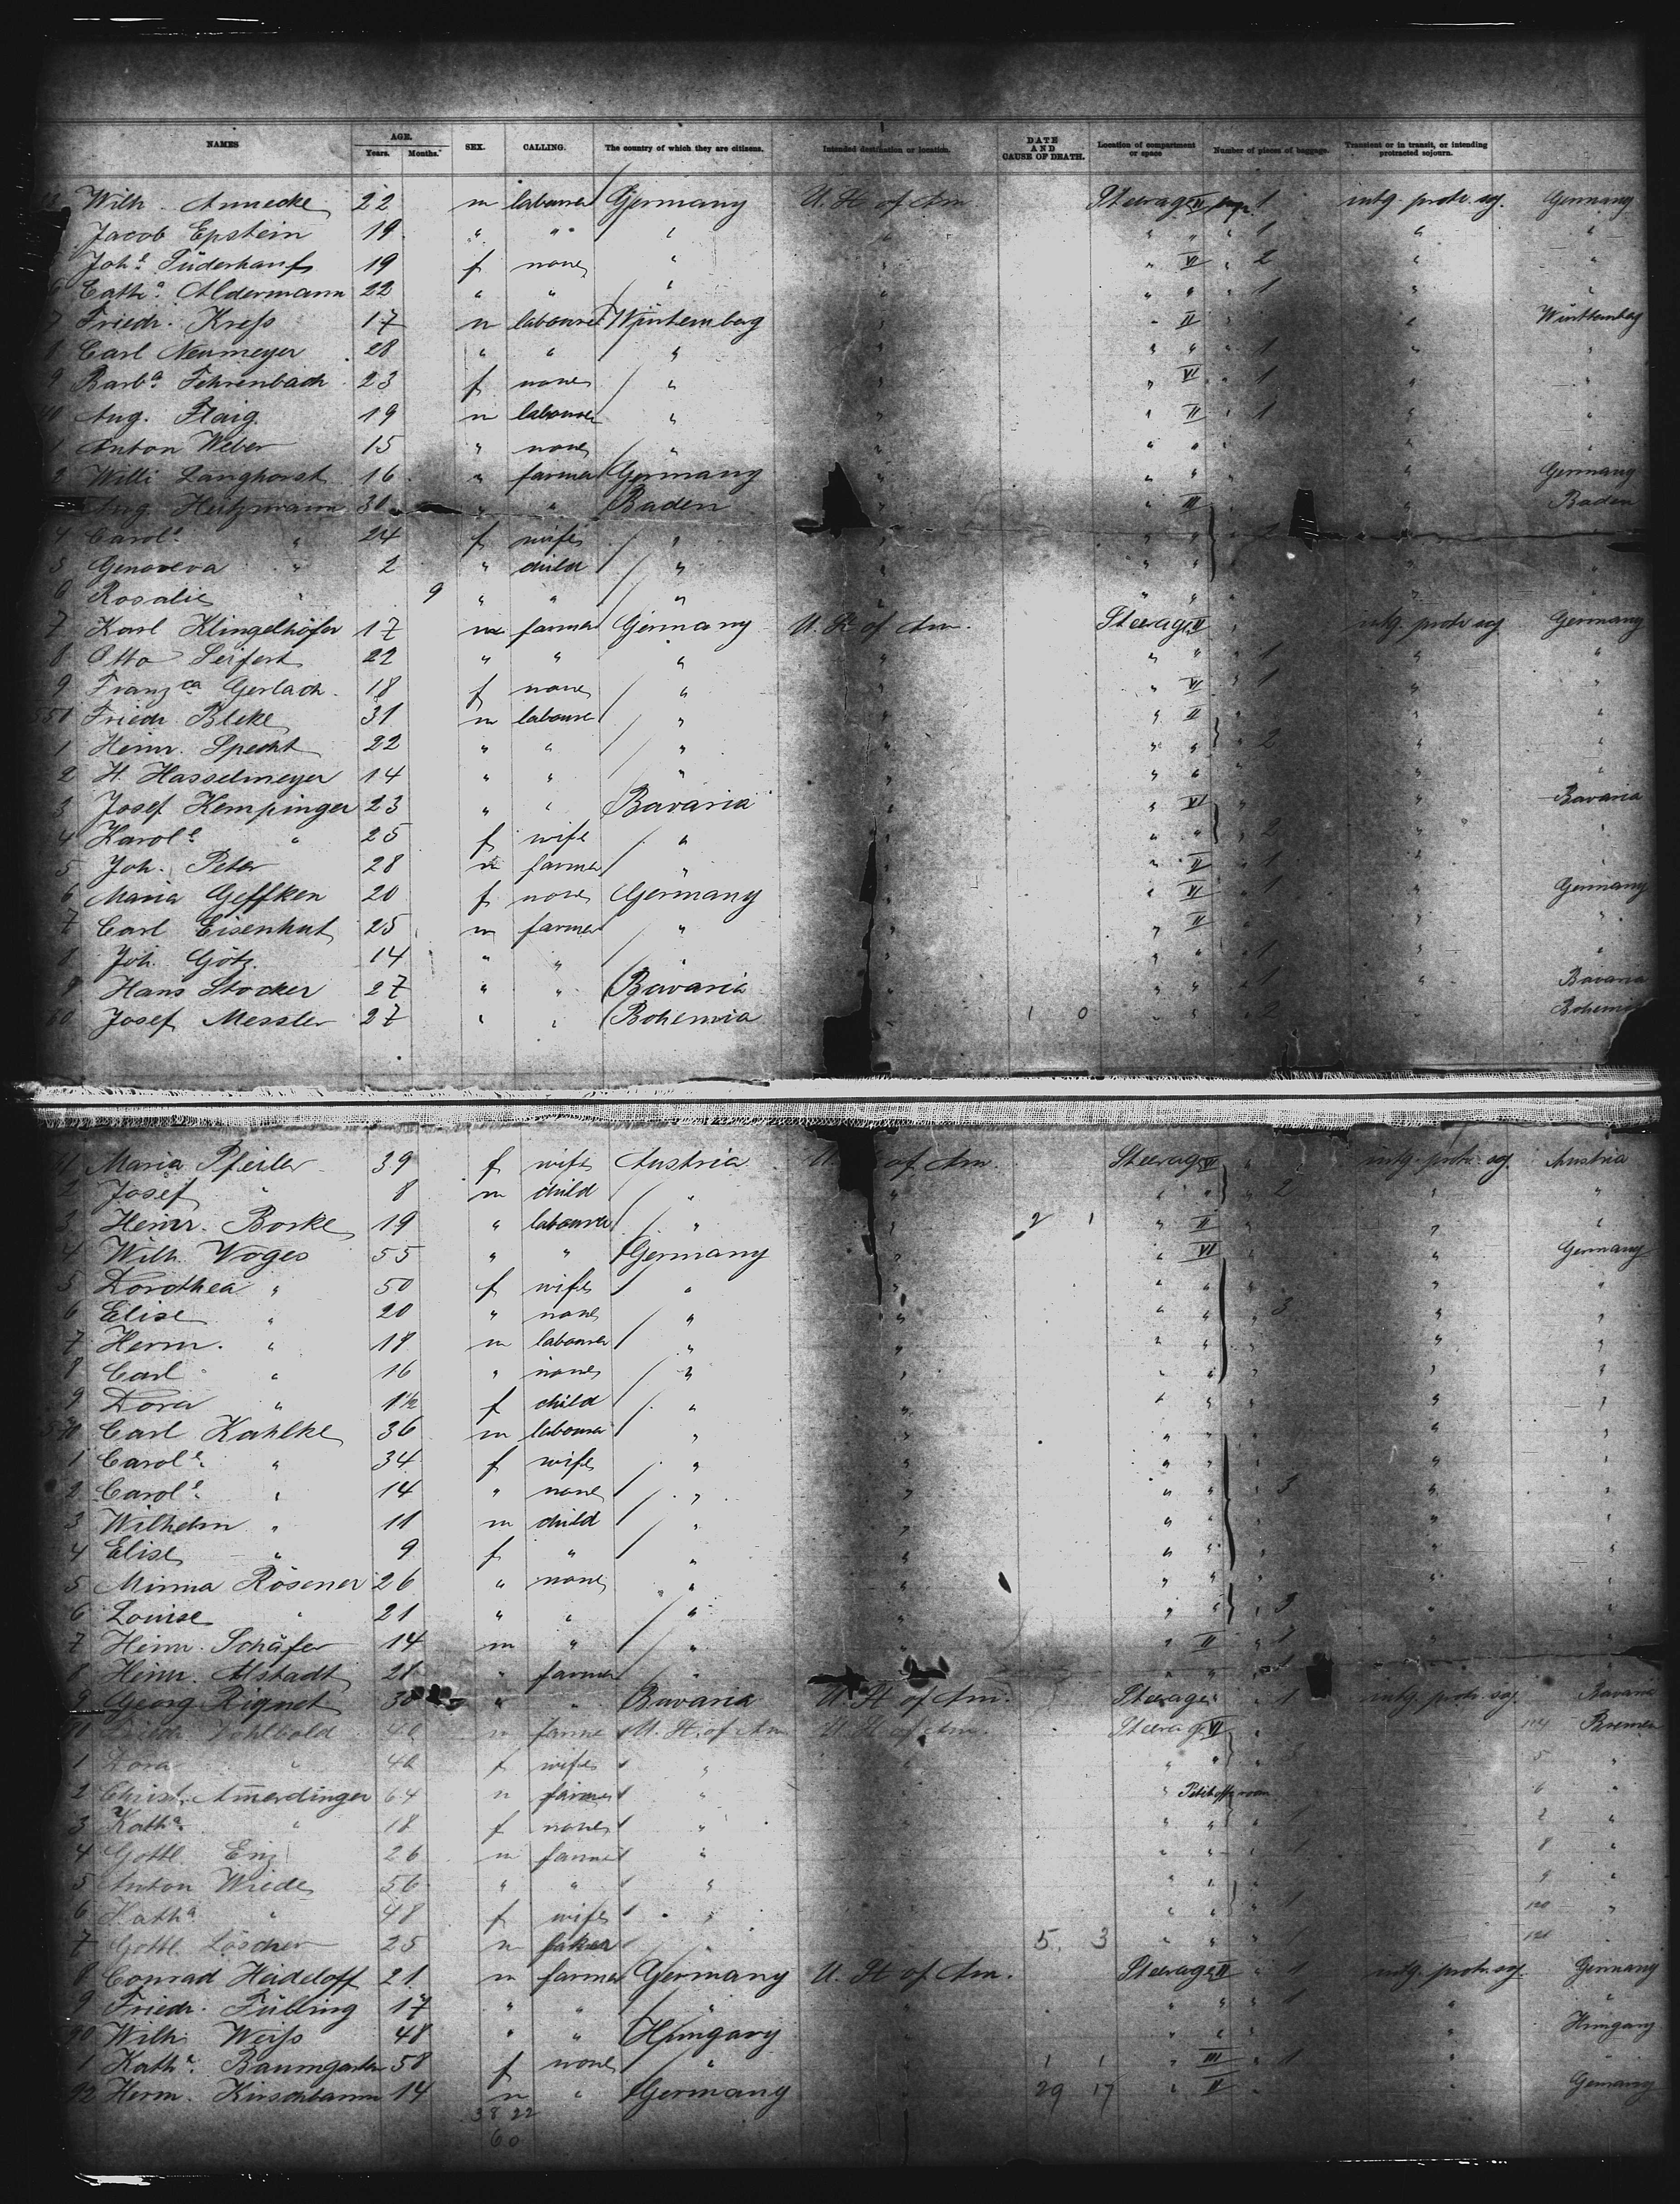 NAMES AGE. Years. Months. SEX. CALLING. The country of which they are citizens. Intended destination or location. DATE AND CAUSE OF DEATH. Location of compartment or space Number of pieces of baggage. Transient or in transit, or intending protracted sojourn.
Wilh. Annecke 22 m labourer Germany U. St. of Am. Steerage II 1 intg. protr. soj. Germany
Jacob Epstein 19 " " " " " " " 1 " "
Joh.e 19 f none " " " VI " 2 " "
6 Cath.a Aldermann 22 " " " " " " " 1 " "
7 Friedr. Kreſs 17 m labourer Würtemberg " " II " " Württemberg
8 Carl Neumeyer 28 " " " " " " " 1 " "
9 Barb.a Fehrenbach 23 f none " " " VI " 1 " "
40 Aug. Flaig 19 m labourer " " " II " 1 " "
1 Anton Weber 15 " none " " " " " "
2 Willi Langhorst 16 " farmer Germany " " " " Germany
Aug. Heitzmann 30 " " Baden " " III " Baden
4 Carol.e " 24 f wife " " " " 2 " "
5 Genoveva " 2 " child " " " " " "
6 Rosalie " 9 " " " " " " " "
7 Karl Klingelhöfer 17 m farmer Germany U. St. of Am. Steerage II " intg. protr. soj. Germany
8 Otto Seifert 22 " " " " " " " 1 " "
9 Franz.ca Gerlach 18 f none " " " VI " 1 " "
550 Friedr. Bleke 31 m labourer " " " II " " "
1 Heinr. Specht 22 " " " " " " " 2 " "
2 H. Hasselmeyer 14 " " " " " " " "
3 Josef Kempinger 23 " " Bavaria " " VI " " Bavaria
4 Karol.e " 25 f wife " " " " " 2 " "
5 Joh. Peter 28 m farmer " " " II " 1 " "
6 Maria Geffken 20 f none Germany " " VI " 1 " Germany
7 Carl Eisenhut 25 m farmer " " " II " "
8 Joh. Götz 14 " " " " " " " 1 " "
9 Hans Stocker 27 " " Bavaria " " " " 1 " Bavaria
60 Josef Messler 27 " " Bohemia 1 0 " " " 2 " Bohemia
1 Maria Pfeiler 39 f wife Austria of Am. Steerage VI " intg. protr. soj. Austria
2 Josef " 8 m child " " " " " 2 " "
3 Heinr. Borke 19 " labourer " " 2 1 " II " " "
4 Wilh. Voges 55 " " Germany " " VI " " Germany
5 Dorothea " 50 f wife " " " " " "
6 Elise " 20 " none " " " " 3 " "
7 Herm. " 18 m labourer " " " " " "
8 Carl " 16 " none " " " " " "
9 Dora " 1½ f child " " " " " " "
570 Carl Kahlke 36 m labourer " " " " " "
1 Carol.e " 34 f wife " " " " " "
2 Carol.e " 14 " none " " " " 3 " "
3 Wilhelm " 11 m child " " " " " "
4 Elise " 9 f " " " " " " " "
5 Minna Rösener 26 " none " " " " " " "
6 Louise " 21 " " " " " " " 3 " "
7 Heinr. Schäfer 14 m " " " " II " 1 " "
8 Heinr. Alstadt 28 " farmer " " " " " 1 "
9 Georg Rignet 30 " " Bavaria U. St. of Am. Steerage " " 1 intg. protr. soj. Bavaria
Vohlbold m farmer U. St. of Am. U. St. of Am. Steerage VI 114 Bremen
1 Dora " f wife " " " 5 "
2 Christ. Am̄erdinger 64 m farmer " " 6 "
3 Kath.a " 18 f none " " " 1 "
4 Gottl. Enz 26 m farmer " 1 8 "
5 Anton Wiede 56 " " " " " 9 "
6 Kath.a " 48 f wife " " " " 1 120 "
7 Gottl. Löscher 25 m baker " 5. 3 " " " 121 "
8 Conrad Heideloff 21 m farmer Germany U. St. of Am. Steerage II " 1 intg. protr. soj. Germany
9 Friedr. Fübling 17 " " " " " " " 1 " "
90 Wilh. Weiſs 48 " " Hungary " " " " Hungary
1 Kath.e Baumgarten 58 f none " 1 1 " III " 1 "
92 Herm. Kirschbaum 14 m " Germany 29 17 " II " " Germany
38 22
60